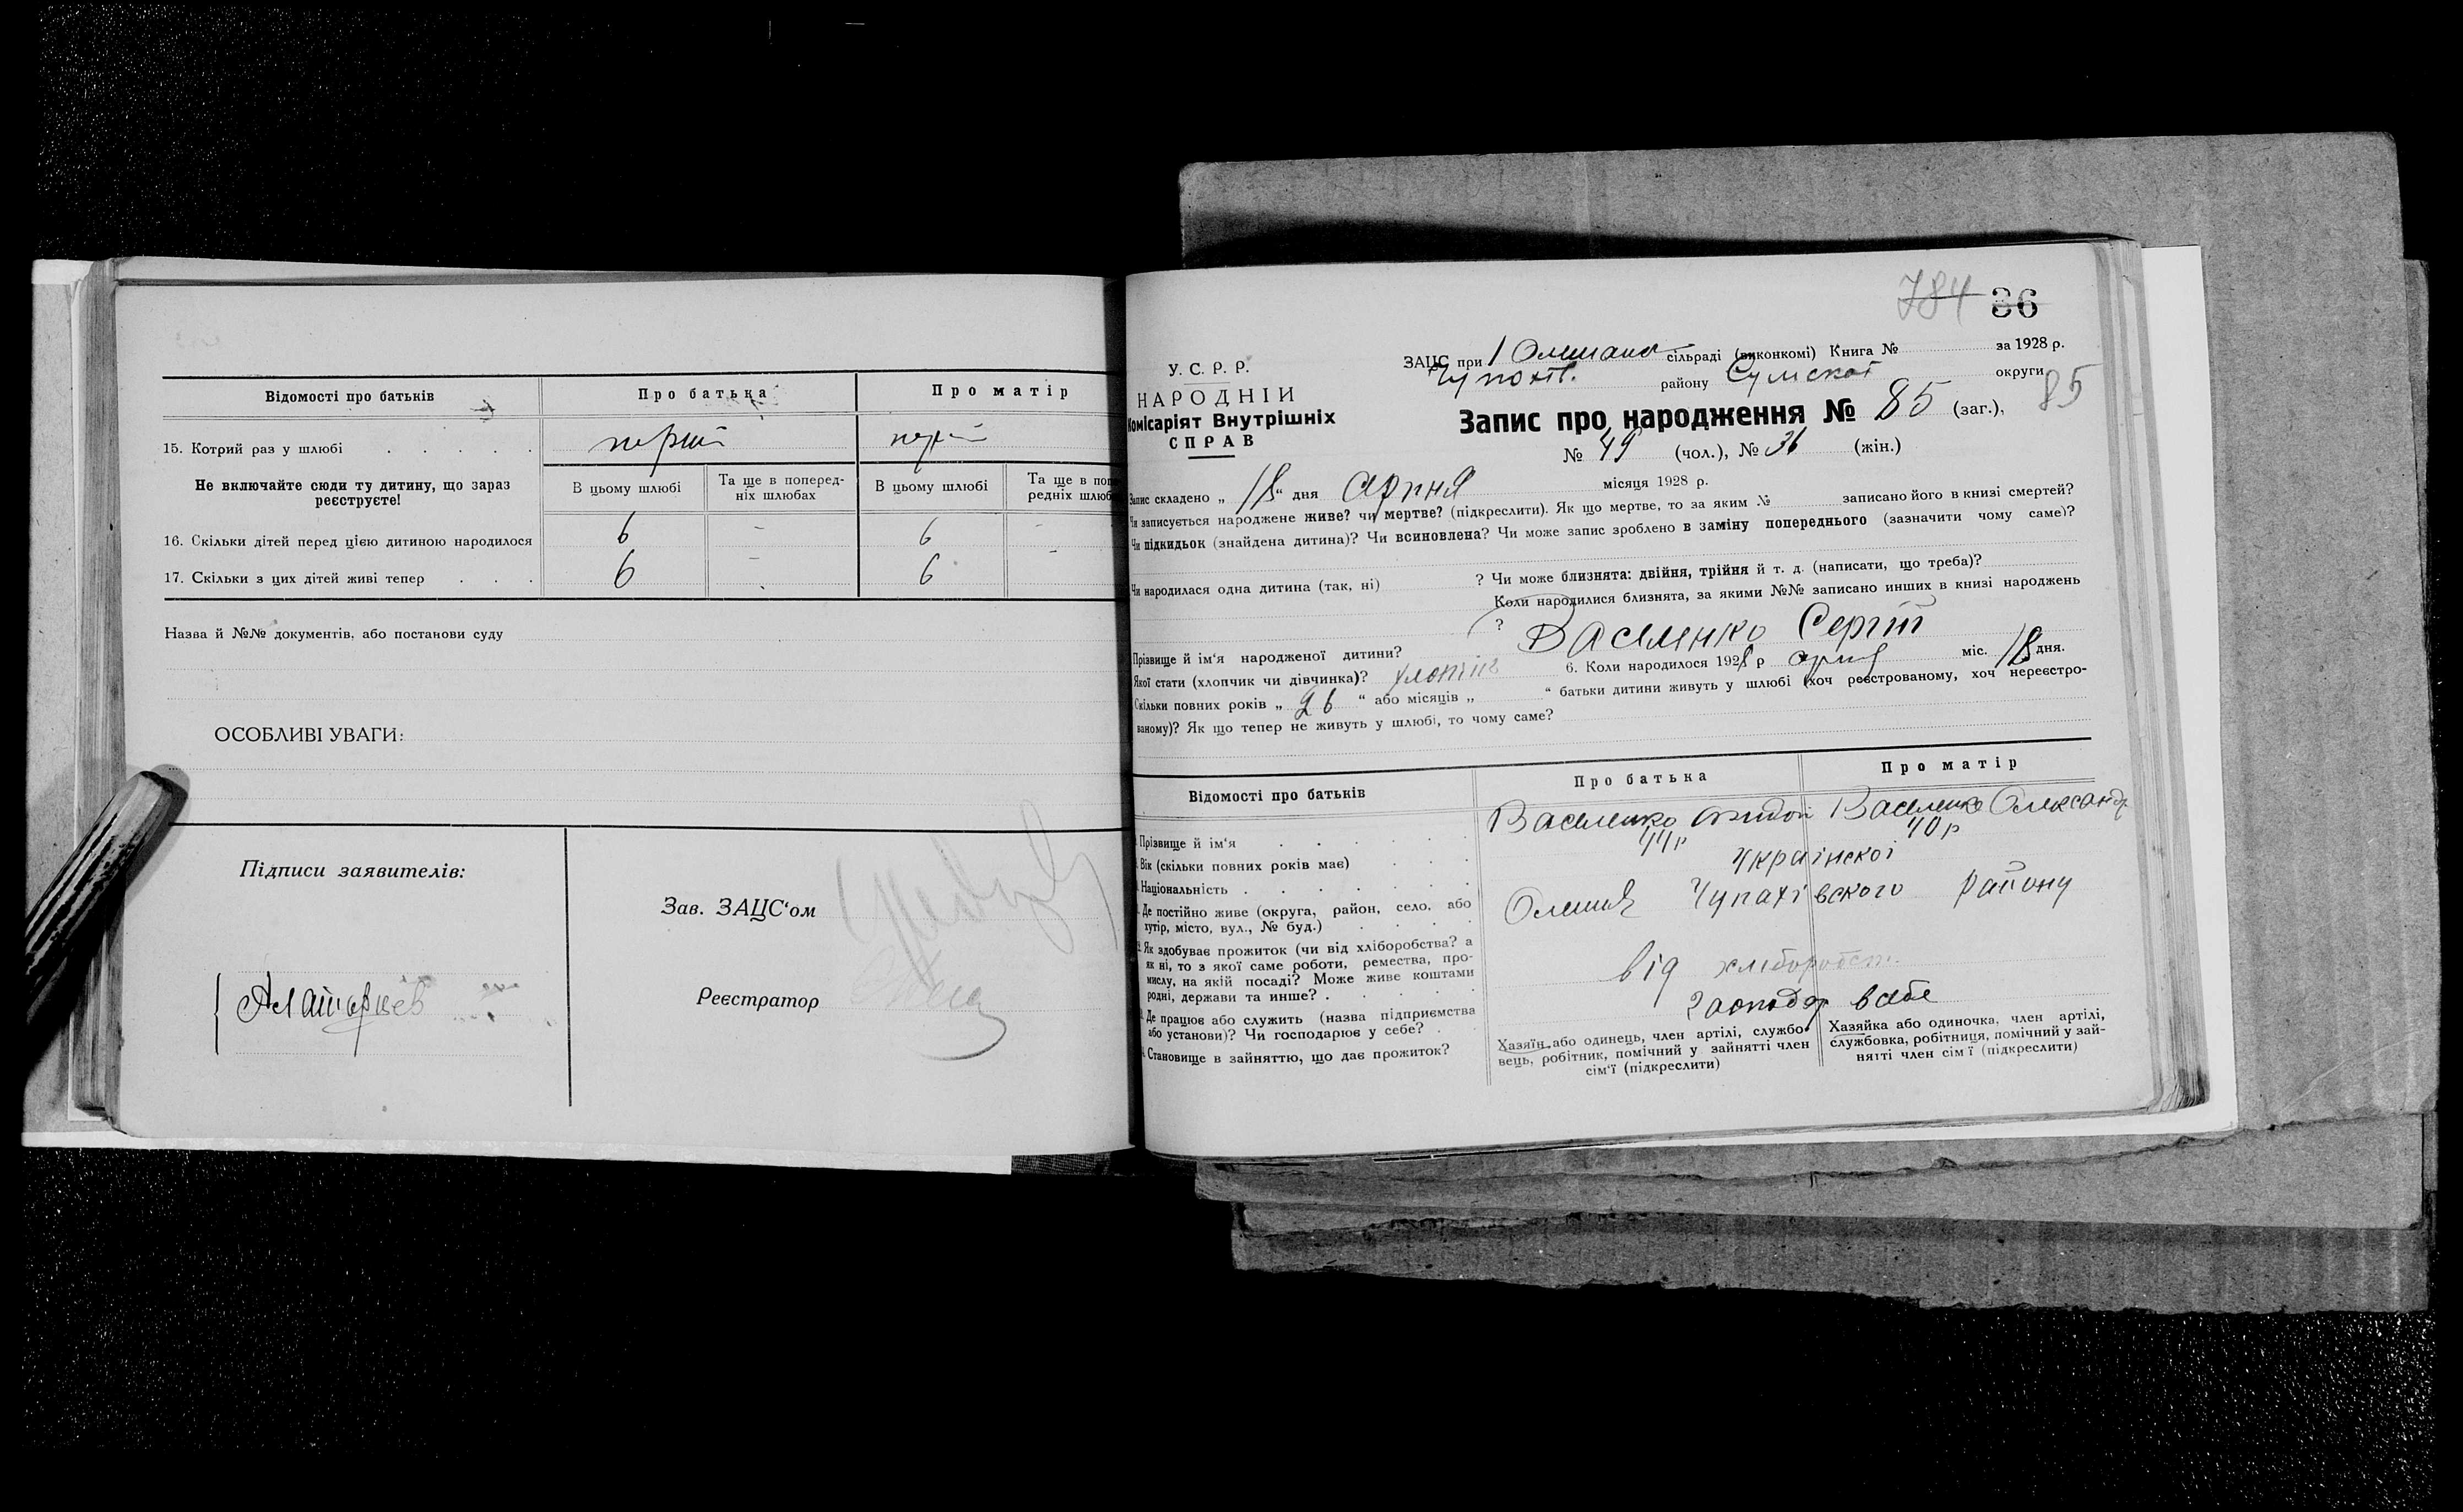 Відомості про батьків
Про батька
Про матір
15. Котрий раз у шлюбі
перший
Не включайте сюди ту дитину, що зараз
реєструєте!
В цьому шлюбі
Та ще в поперед-
ніх шлюбах
В цьому шлюбі
Та ще в поп
редніх шлюб
16. Скільки дітей перед цією дитиною народилося
6 - 6 -
17. Скільки з цих дітей живі тепер
6 - 6 -
Назва й №№ документів, або постанови суду
ОСОБЛИВІ УВАГИ:
Підписи заявителів:
Зав. ЗАЦС'ом
Реєстратор
784 36
У. С. Р. Р.
НАРОДНІЙ
Комісаріят Внутрішніх
СПРАВ
ЗАЦС при 1 Олешан сільраді (виконкомі) Книга № за 1928 р.
Чупахів. району Сумскоі округи
Запис про народження № 85 (заг.), 85
№ 49 (чол.), № 36 (жін.)
Запис складено „ 18 “ дня серпня місяця 1928 р.
Чи записується народжене живе? чи мертве? (підкреслити). Як що мертве, то за яким № записано його в книзі смертей?
Чи підкидьок (знайдена дитина)? Чи всиновлена? Чи може запис зроблено в заміну попереднього (зазначити чому саме)?
Чи народилася одна дитина (так, ні) ? Чи може близнята: двійня, трійня й т. д. (написати, що треба)?
Коли народилися близнята, за якими №№ записано инших в книзі народжень
?
Прізвище й ім'я народженої дитини? Василенко Сергій
Якої стати (хлопчик чи дівчинка)? хлопчик 6. Коли народилося 1928 р серпня міс. 18 дня.
Скільки повних років „ 26 “ або місяців „ “ батьки дитини живуть у шлюбі (хоч реєстрованому, хоч нереєстро-
ваному)? Як що тепер не живуть у шлюбі, то чому саме?
Відомості про батьків
Про батька
Про матір
Прізвище й ім'я
Василенко
Василенко Олександр
Вік (скільки повних років має)
44р
40р
Національність
Украінскоі
Де постійно живе (округа, район, село, або
хутір, місто, вул., № буд.)
Олешня Чупахівского району
Як здобуває прожиток (чи від хліборобства? а
як ні, то з якої саме роботи, ремества, про-
мислу, на якій посаді? Може живе коштами
родні, держави та инше?
від хліборобст.
Де працює або служить (назва підприємства
або установи)? Чи господарює у себе?
господар в себе
Становище в зайняттю, що дає прожиток?
Хазяїн або одинець, член артілі, службо-
вець, робітник, помічний у зайнятті член
сім'ї (підкреслити)
Хазяйка або одиночка, член артілі,
службовка, робітниця, помічний у зай-
нятті член сім'ї (підкреслити)